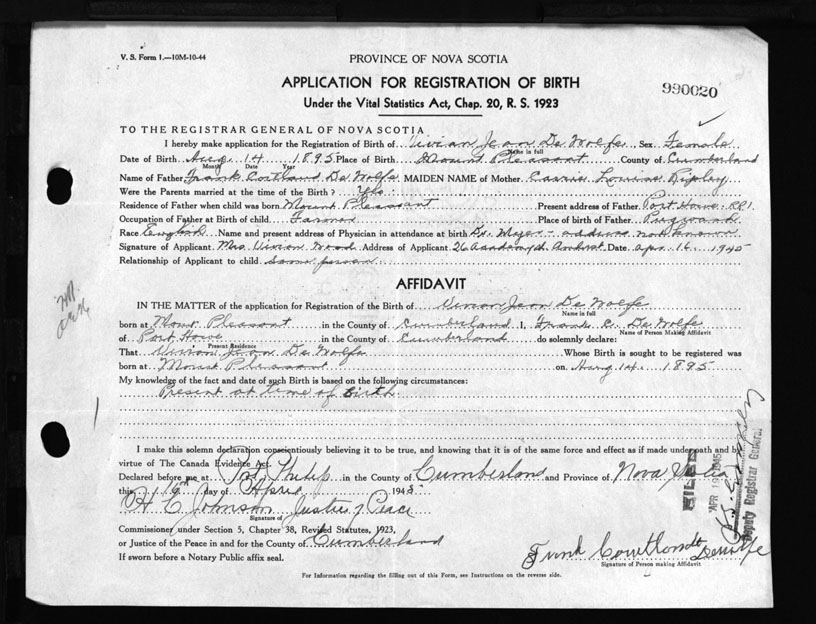 V. S. Form 1.—10M-10-44
PROVINCE OF NOVA SCOTIA
APPLICATION FOR REGISTRATION OF BIRTH
990020
Under the Vital Statistics Act, Chap. 20, R. S. 1923
TO THE REGISTRAR GENERAL OF NOVA SCOTIA
I hereby make application for the Registration of Birth of Vivian Jean De Wolfe Sex Female
Name in full
Date of Birth Aug 14 1895 Place of Birth Mount Pleasant County of Cumberland
Month Date Year
Name of Father Frank Cortland De Wolfe MAIDEN NAME of Mother Carrie Louise Ripley
Were the Parents married at the time of the Birth? Yes
Residence of Father when child was born Mount Pleasant Present address of Father Port Howe RR1
Occupation of Father at Birth of child Farmer Place of birth of Father Pugwash
Race English Name and present address of Physician in attendance at birth Dr. address not known
Signature of Applicant Mrs. Vivian Wood Address of Applicant 26 Amherst Date Apr. 16 1945
Relationship of Applicant to child Same person
AFFIDAVIT
IN THE MATTER of the application for Registration of the Birth of Vivian Jean De Wolfe
Name in full
born at Mount Pleasant in the County of Cumberland I, Frank C. De Wolfe
Name of Person Making Affidavit
of Port Howe in the County of Cumberland do solemnly declare:
Present Residence
That Vivian Jean De Wolfe Whose Birth is sought to be registered was
born at Mount Pleasant on Aug 14. 1895
My knowledge of the fact and date of such Birth is based on the following circumstances:
Present at time of Birth
I make this solemn declaration conscientiously believing it to be true, and knowing that it is of the same force and effect as if made under oath and by
virtue of The Canada Evidence Act.
Declared before me at Port Philip in the County of Cumberland and Province of Nova Scotia
this 16 day of April 1945
H C Johnson Justice of Peace
Signature of
Commissioner under Section 5, Chapter 38, Revised Statutes, 1923,
or Justice of the Peace in and for the County of Cumberland
If sworn before a Notary Public affix seal.
Frank Courtlondt Dewolfe
Signature of Person making Affidavit
For Information regarding the filling out of this Form, see Instructions on the reverse side.
FILED
APR 19 1945
Deputy Registrar General